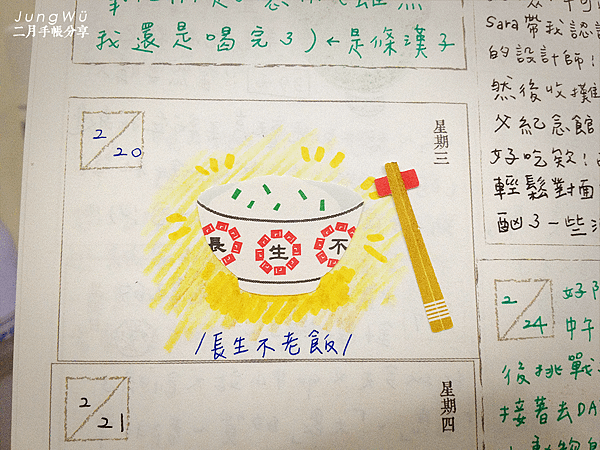 JungWü
二月手帳分享
我還是喝完了)←是條漢子
2/20
星期三
長 生 不
/長生不老飯/
2/21
星期四
Sara帶我認識
的設計師!
然後收攤
父紀念館
好吃欸!
輕鬆對面
酗了一些
2/24
好
中午
後挑戰
接著去DA